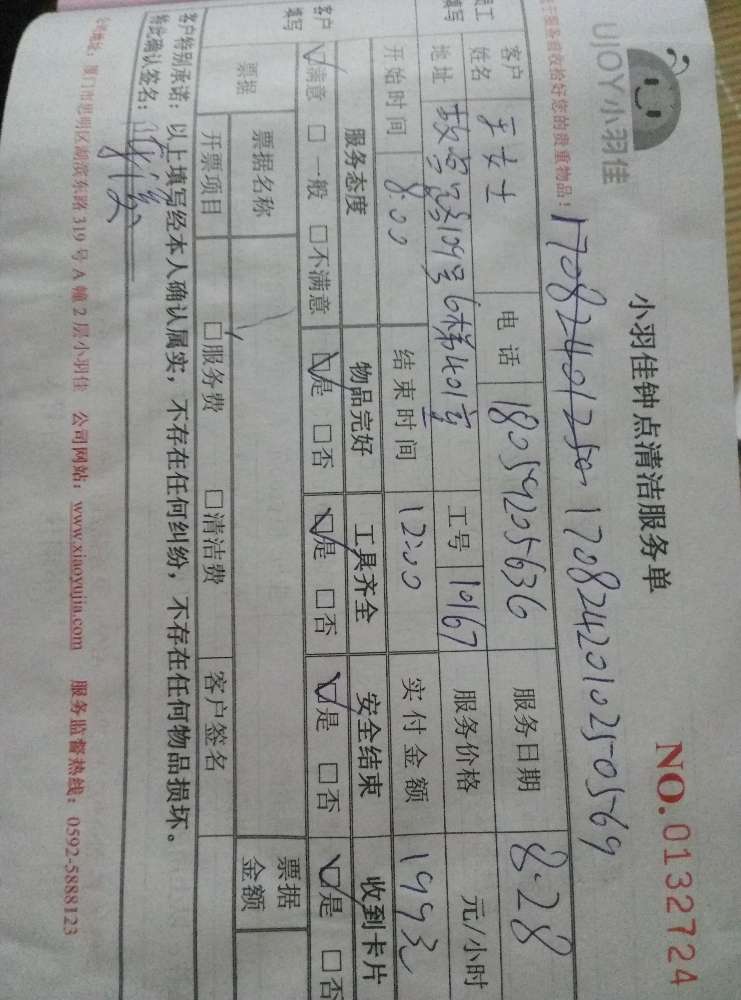 UJOY小羽佳
小羽佳钟点清洁服务单
NO.0132724
服务前收拾好您的贵重物品!
客户姓名 于女士 电话 18059205636 服务日期 8.28
地址 109号6梯401室 工号 10167 服务价格 元/小时
开始时间 8:00 结束时间 12:00 实付金额
客户填写 服务态度 物品完好 工具齐全 安全结束 收到卡片
☑满意 □一般 □不满意 ☑是 □否 ☑是 □否 ☑是 □否 ☑是 □否
票据 票据名称 票据金额
开票项目 □服务费 □清洁费 客户签名
客户特别承诺:以上填写经本人确认属实,不存在任何纠纷,不存在任何物品损坏。
特此确认签名:
厦门市思明区湖滨东路319号A幢2层小羽佳 公司网站:www.xiaoyujia.com 服务监督热线:0592-5888123